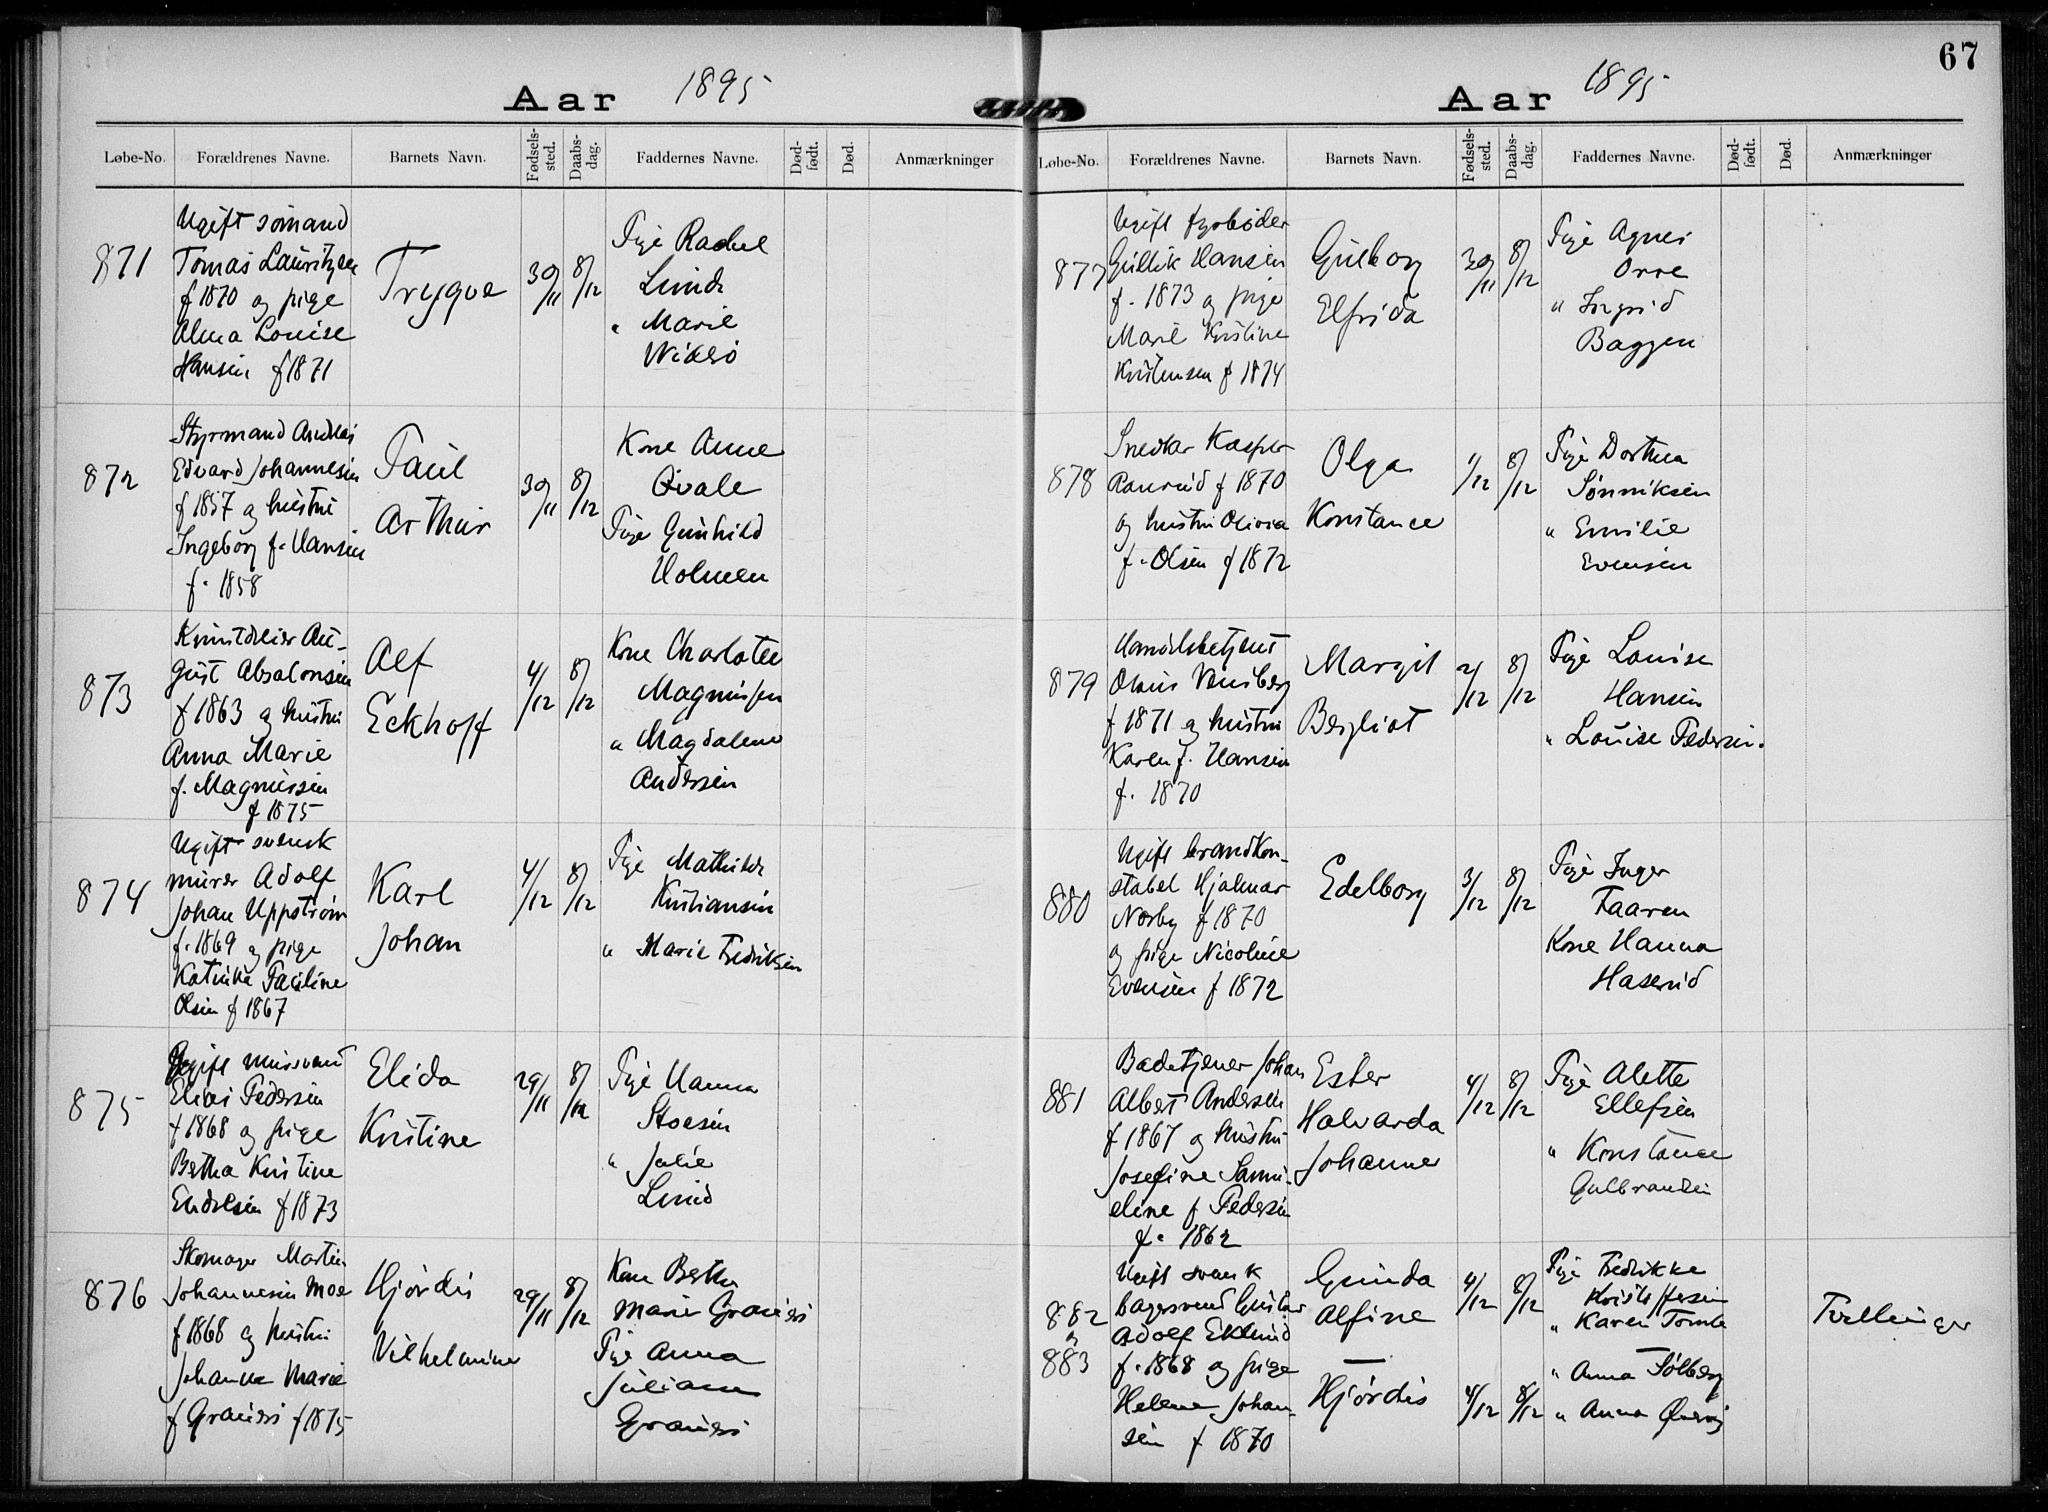 67
Aar 1895
Løbe-No. Forældrenes Navne. Barnets Navn. Fødsels-sted. Daabs-dag. Faddernes Navne. Død-født. Død. Anmærkninger
871
Ugift sømand
Tomas Lauritzen
f 1870 og pige
Alma Louise
Hansen f 1871
Trygve
30/11
8/12
Pige Rachel
Lund
" Marie
Widsø
872
Styrmand Andreas
Edvard Johannesen
f 1857 og hustru
Ingeborg f. Hansen
f. 1858
Paul
Arthur
30/11
8/12
Kone Anne
Qvale
Pige Gunhild
Holmen
873
Kunstdreier Au-
gust Absalonsen
f 1863 og hustru
Anna Marie
f. Magnussen
f 1875
Alf
Eckhoff
4/12
8/12
Kone Charlotte
Magnussen
" Magdalene
Andersen
874
Ugift svensk
murer Adolf
Johan Uppström
f. 1869 og pige
Katinka Pauline
Olsen f 1867
Karl
Johan
4/12
8/12
Pige Mathilde
Kristiansen
" Marie Fredriksen
875
Ugift mursvend
Elias Pedersen
f 1868 og pige
Bertha Kristine
Endresen f 1873
Elida
Kristine
29/11
8/12
Pige Hanna
Stoesen
" Julie
Lund
876
Skomager Martin
Johannesen Moe
f 1868 og hustru
Johanne Marie
f Grauers f 1875
Hjørdis
Vilhelmine
29/11
8/12
Kone Berthe
Marie Grauers
Pige Anna
Juliane
Grauers
Aar 1895
Løbe-No. Forældrenes Navne. Barnets Navn. Fødsels-sted. Daabs-dag. Faddernes Navne. Død-født. Død. Anmærkninger
877
Ugift fyrbøder
Gullik Hansen
f. 1873 og pige
Marie Kristine
Kristensen f 1874
Gueborg
Elfrida
30/11
8/12
Pige Agnes
Orre
" Ingrid
Baggen
878
Snedker Kasper
Ranrud f 1870
og hustru Olivia
f. Olsen f 1872
Olga
Konstance
1/12
8/12
Pige Dorthea
Sønniksen
" Emilie
Evensen
879
Handelsbetjent
Olaus
f 1871 og hustru
Karen f. Hansen
f. 1870
Margit
Bergliot
2/12
8/12
Pige Louise
Hansen
" Louise Pedersen.
880
Ugift brandkon-
stabel Hjalmar
Norby f 1870
og pige Nicoline
Evensen f 1872
Edelborg
3/12
8/12
Pige Inger
Faaren
Kone Hanna
Haserud
881
Badetjener Johan
Albert Andersen
f 1867 og hustru
Josefine Samu-
eline f Pedersen
f. 1862
Ester
Halvarda
Johanne
4/12
8/12
Pige Alette
Ellefsen
" Konstance
Gulbrandsen
882
og
883
Ugift svensk
bagersvend Gustav
Adolf Eklund
f. 1868 og pige
Helene Johan-
sen f 1870
Gunda
Alfine
4/12
8/12
Hjørdis
4/12
8/12
Pige Fredrikke
Kristoffersen
" Karen Tomte
" Anna Solberg
" Anna
Tvillinger